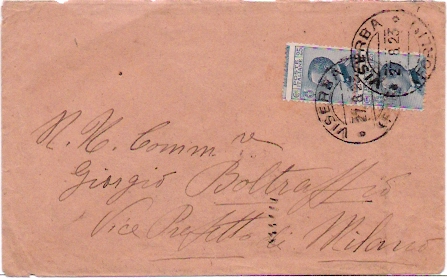 VISERBA
27.8.23
VISERBA
27.8.23
N. N. Comm.re
Giorgio Boltraffio
Vice Prefetto di Milano